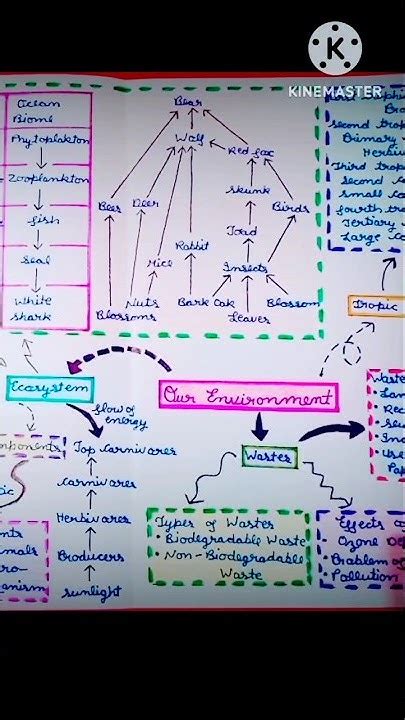 KINEMASTER
Ocean
Biome
Phytoplakton
Zooplankton
fish
Seal
White
Shark
Bear
Wolf
Red fox
Skunk
Bees
Deer
Birds
Toad
Rabbit
Mice
Insects
Nuts
Bark
Oak
Blossom
Blossoms
Leaves
second trop
Primary
Third trop
Second
Small
fourth tro
Tertiary
Large
Tropic
Ecosystem
flow of
energy
Our Environment
Wastes
Top Carnivores
Carnivores
Herbivores
Producers
Sunlight
Types of Wastes
• Biodegradable Waste
• Non-Biodegradable
Waste
Effects o
• Ozone De
• Problem of
• Pollution